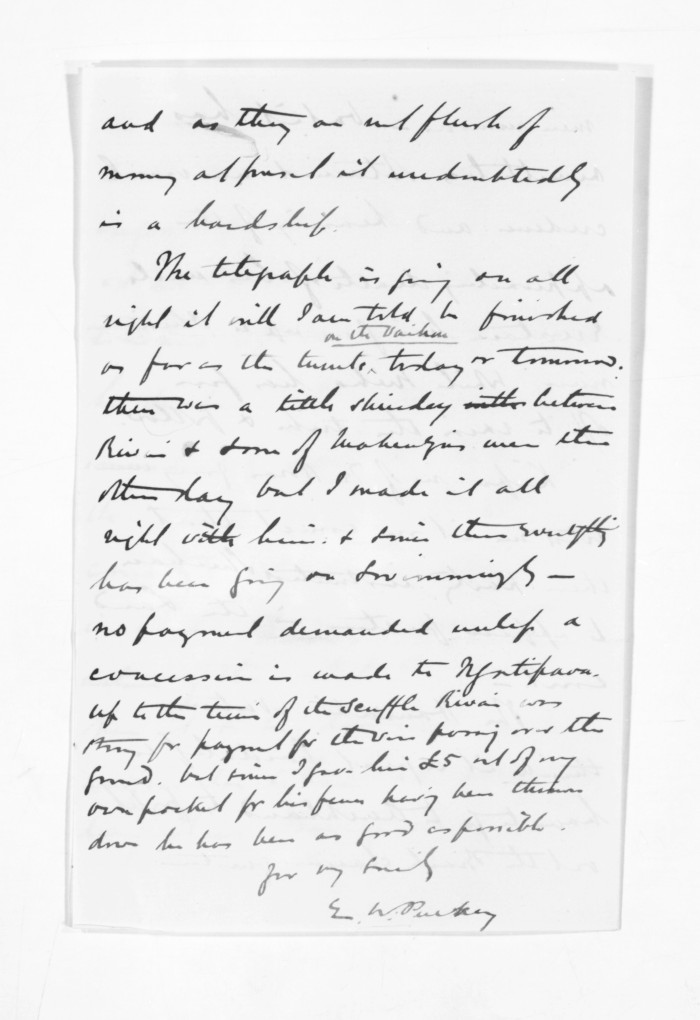 and as they are not flush of
money at present it undoubtedly
is a hardship.
The telegraph is going on all
right it will I am told be finished
on the Waihou
as far as the tunits, today or tomorrow.
there was a little shindey between
Riwai & some of Mackenzies men the
other day but I made it all
right with him. & since then everything
has been going on swimmingly —
no payment demanded unless a
concession is made to Ngatipaoa.
up to the time of the scuffle Riwai was
strong for payment for the wire passing over the
ground. but since I gave him £5 out of my
own pocket for his fence having been thrown
down he has been as good as possible.
for my
E. W. Puckey